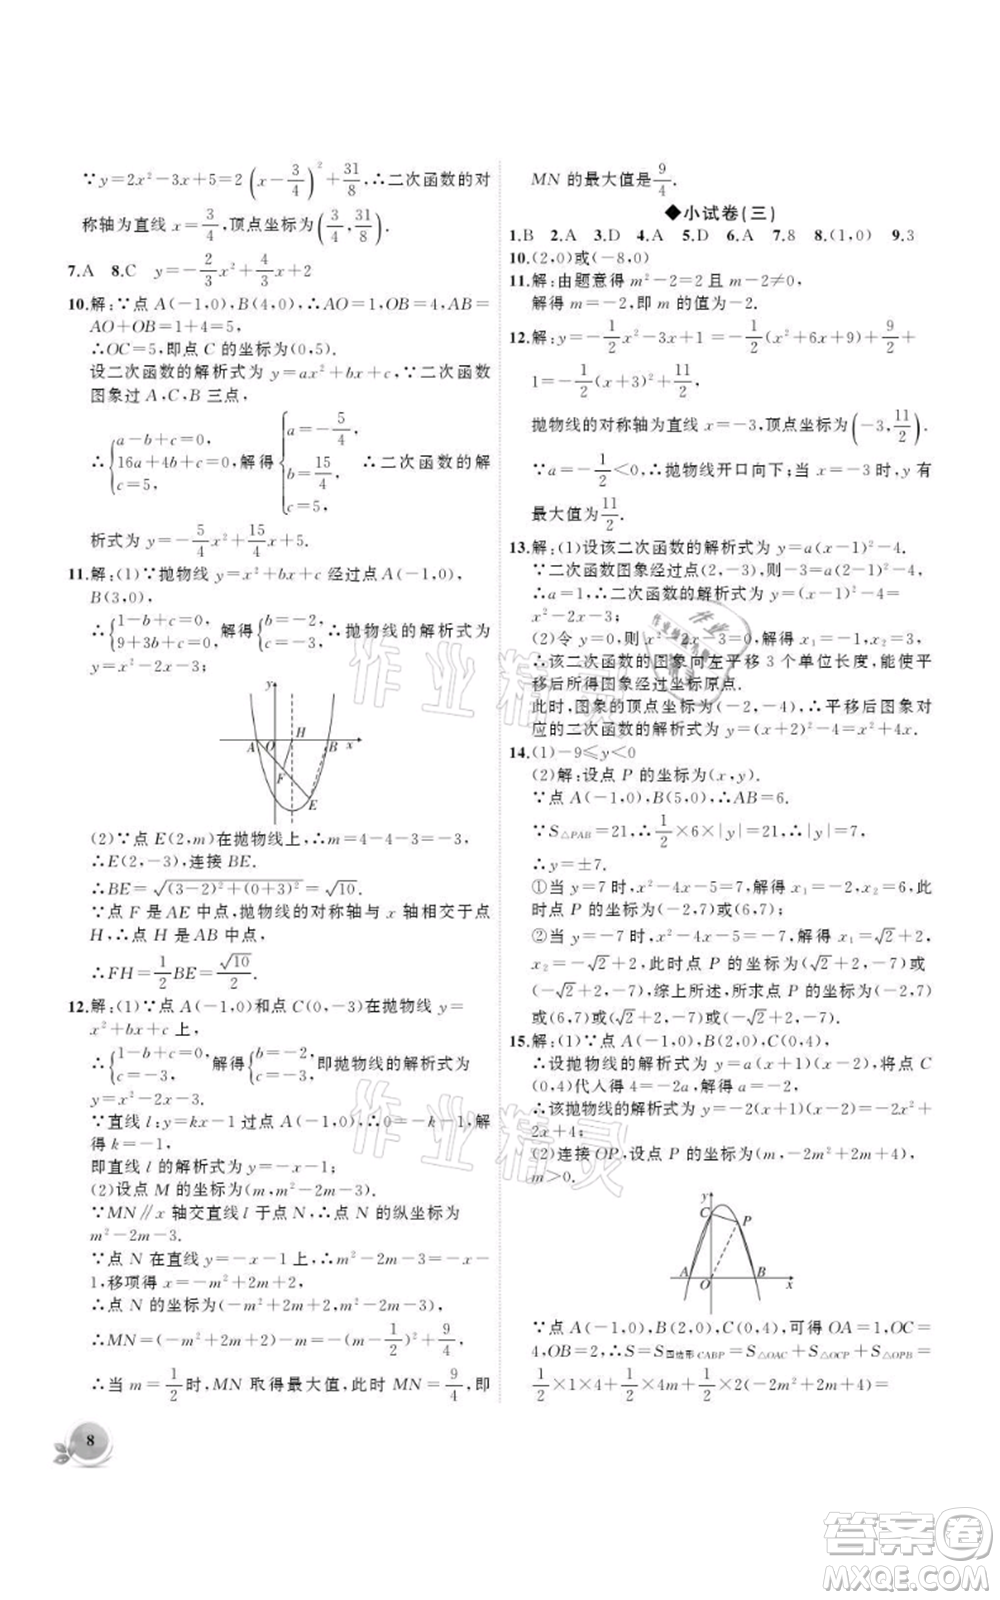 ∵y=2x²-3x+5=2(x-3/4)²+31/8,∴二次函数的对
称轴为直线 x=3/4,顶点坐标为(3/4,31/8).
7.A 8.C y=-2/3x²+4/3x+2
10.解:∵点 A(-1,0),B(4,0),∴AO=1,OB=4,AB=
AO+OB=1+4=5,
∴OC=5,即点 C 的坐标为(0,5).
设二次函数的解析式为 y=ax²+bx+c,∵二次函数
图象过 A,C,B 三点,
∴{a-b+c=0, 16a+4b+c=0, c=5, 解得{a=-5/4, b=15/4, c=5, ∴二次函数的解
析式为 y=-5/4x²+15/4x+5.
11.解:(1)∵抛物线 y=x²+bx+c 经过点 A(-1,0),
B(3,0),
∴{1-b+c=0, 9+3b+c=0, 解得{b=-2, c=-3, ∴抛物线的解析式为
y=x²-2x-3;
y
A O H B x
F
E
(2)∵点 E(2,m)在抛物线上,∴m=4-4-3=-3,
∴E(2,-3),连接 BE.
∴BE=√(3-2)²+(0+3)²=√10.
∵点 F 是 AE 中点,抛物线的对称轴与 x 轴交于点
H,∴点 H 是AB 中点,
∴FH=1/2BE=√10/2.
12.解:(1)∵点 A(-1,0)和点 C(0,-3)在抛物线 y=
x²+bx+c 上,
∴{1-b+c=0, c=-3, 解得{b=-2, c=-3, 即抛物线的解析式为
y=x²-2x-3.
∵直线 l:y=kx-1 过点 A(-1,0),∴0=-k-1,解
得 k=-1,
即直线 l 的解析式为 y=-x-1;
(2)设点 M 的坐标为(m,m²-2m-3).
∵MN∥x 轴交直线 l 于点 N,∴点 N 的纵坐标为
m²-2m-3.
∵点 N 在直线 y=-x-1 上,∴m²-2m-3=-x-
1,移项得 x=-m²+2m+2,
∴点 N 的坐标为(-m²+2m+2,m²-2m-3),
∴MN=-m²+2m+2-m=-(m-1/2)²+9/4,
∴当 m=1/2时,MN 取得最大值,此时 MN=9/4,即
MN 的最大值是9/4.
◆小试卷(三)
1.B 2.A 3.D 4.A 5.D 6.A 7.8 8.(1,0) 9.3
10.(2,0)或(-8,0)
11.解:由题意得 m²-2=2且 m-2≠0,
解得 m=-2,即 m 的值为-2.
12.解:y=-1/2x²-3x+1=-1/2(x²+6x+9)+9/2+
1=-1/2(x+3)²+11/2,
抛物线的对称轴为直线 x=-3,顶点坐标为(-3,11/2).
∵a=-1/2<0,∴抛物线开口向下;当 x=-3时,y 有
最大值为11/2.
13.解:(1)设该二次函数的解析式为 y=a(x-1)²-4.
∵二次函数图象经过点(2,-3),则-3=a(2-1)²-4,
∴a=1,∴二次函数的解析式为 y=(x-1)²-4=
x²-2x-3;
(2)令 y=0,则 x²-2x-3=0,解得 x₁=-1,x₂=3,
∴该二次函数的图象向左平移 3 个单位长度,能使平
移后所得图象经过坐标原点.
此时,图象的顶点坐标为(-2,-4),∴平移后图象对
应的二次函数的解析式为 y=(x+2)²-4=x²+4x.
14.(1)-9≤y<0
(2)解:设点 P 的坐标为(x,y).
∵点 A(-1,0),B(5,0),∴AB=6.
∵S△PAB=21,∴1/2×6×|y|=21,∴|y|=7.
∴y=±7.
①当 y=7时,x²-4x-5=7,解得 x₁=-2,x₂=6,此
时点 P 的坐标为(-2,7)或(6,7);
②当 y=-7时,x²-4x-5=-7,解得 x₁=√2+2,
x₂=-√2+2,此时点 P 的坐标为(√2+2,-7)或
(-√2+2,-7),综上所述,所求点 P 的坐标为(-2,7)
或(6,7)或(√2+2,-7)或(-√2+2,-7).
15.解:(1)∵点 A(-1,0),B(2,0),C(0,4),
∴设抛物线的解析式为 y=a(x+1)(x-2),将点 C
(0,4)代人得 4=-2a,解得 a=-2,
∴该抛物线的解析式为 y=-2(x+1)(x-2)=-2x²+
2x+4;
(2)连接 OP,设点 P 的坐标为(m,-2m²+2m+4),
m>0.
y
C P
A O B x
∵点 A(-1,0),B(2,0),C(0,4),可得 OA=1,OC=
4,OB=2,∴S=S四边形CABP=S△OAC+S△OCP+S△OPB=
1/2×1×4+1/2×4m+1/2×2(-2m²+2m+4)=
8
作业精灵
作业精灵
答案圈
MXQE.COM